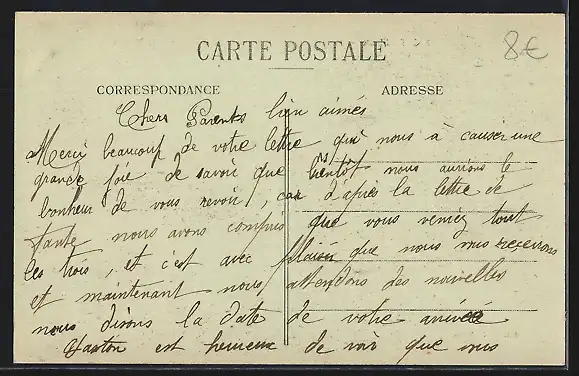 CARTE POSTALE
8€
CORRESPONDANCE
ADRESSE
Chers Parents bien aimés
Merci beaucoup de votre lettre qui nous à causer une
grande joie de savoir que bientôt nous aurions le
bonheur de vous revoir, car d'après la lettre de
tante nous avons compris que vous veniez tout
les trois, et c'est avec plaisir que nous vous recevrons
et maintenant nous attendons des nouvelles
nous disons la date de votre arrivée
Gaston est heureux de voir que vous